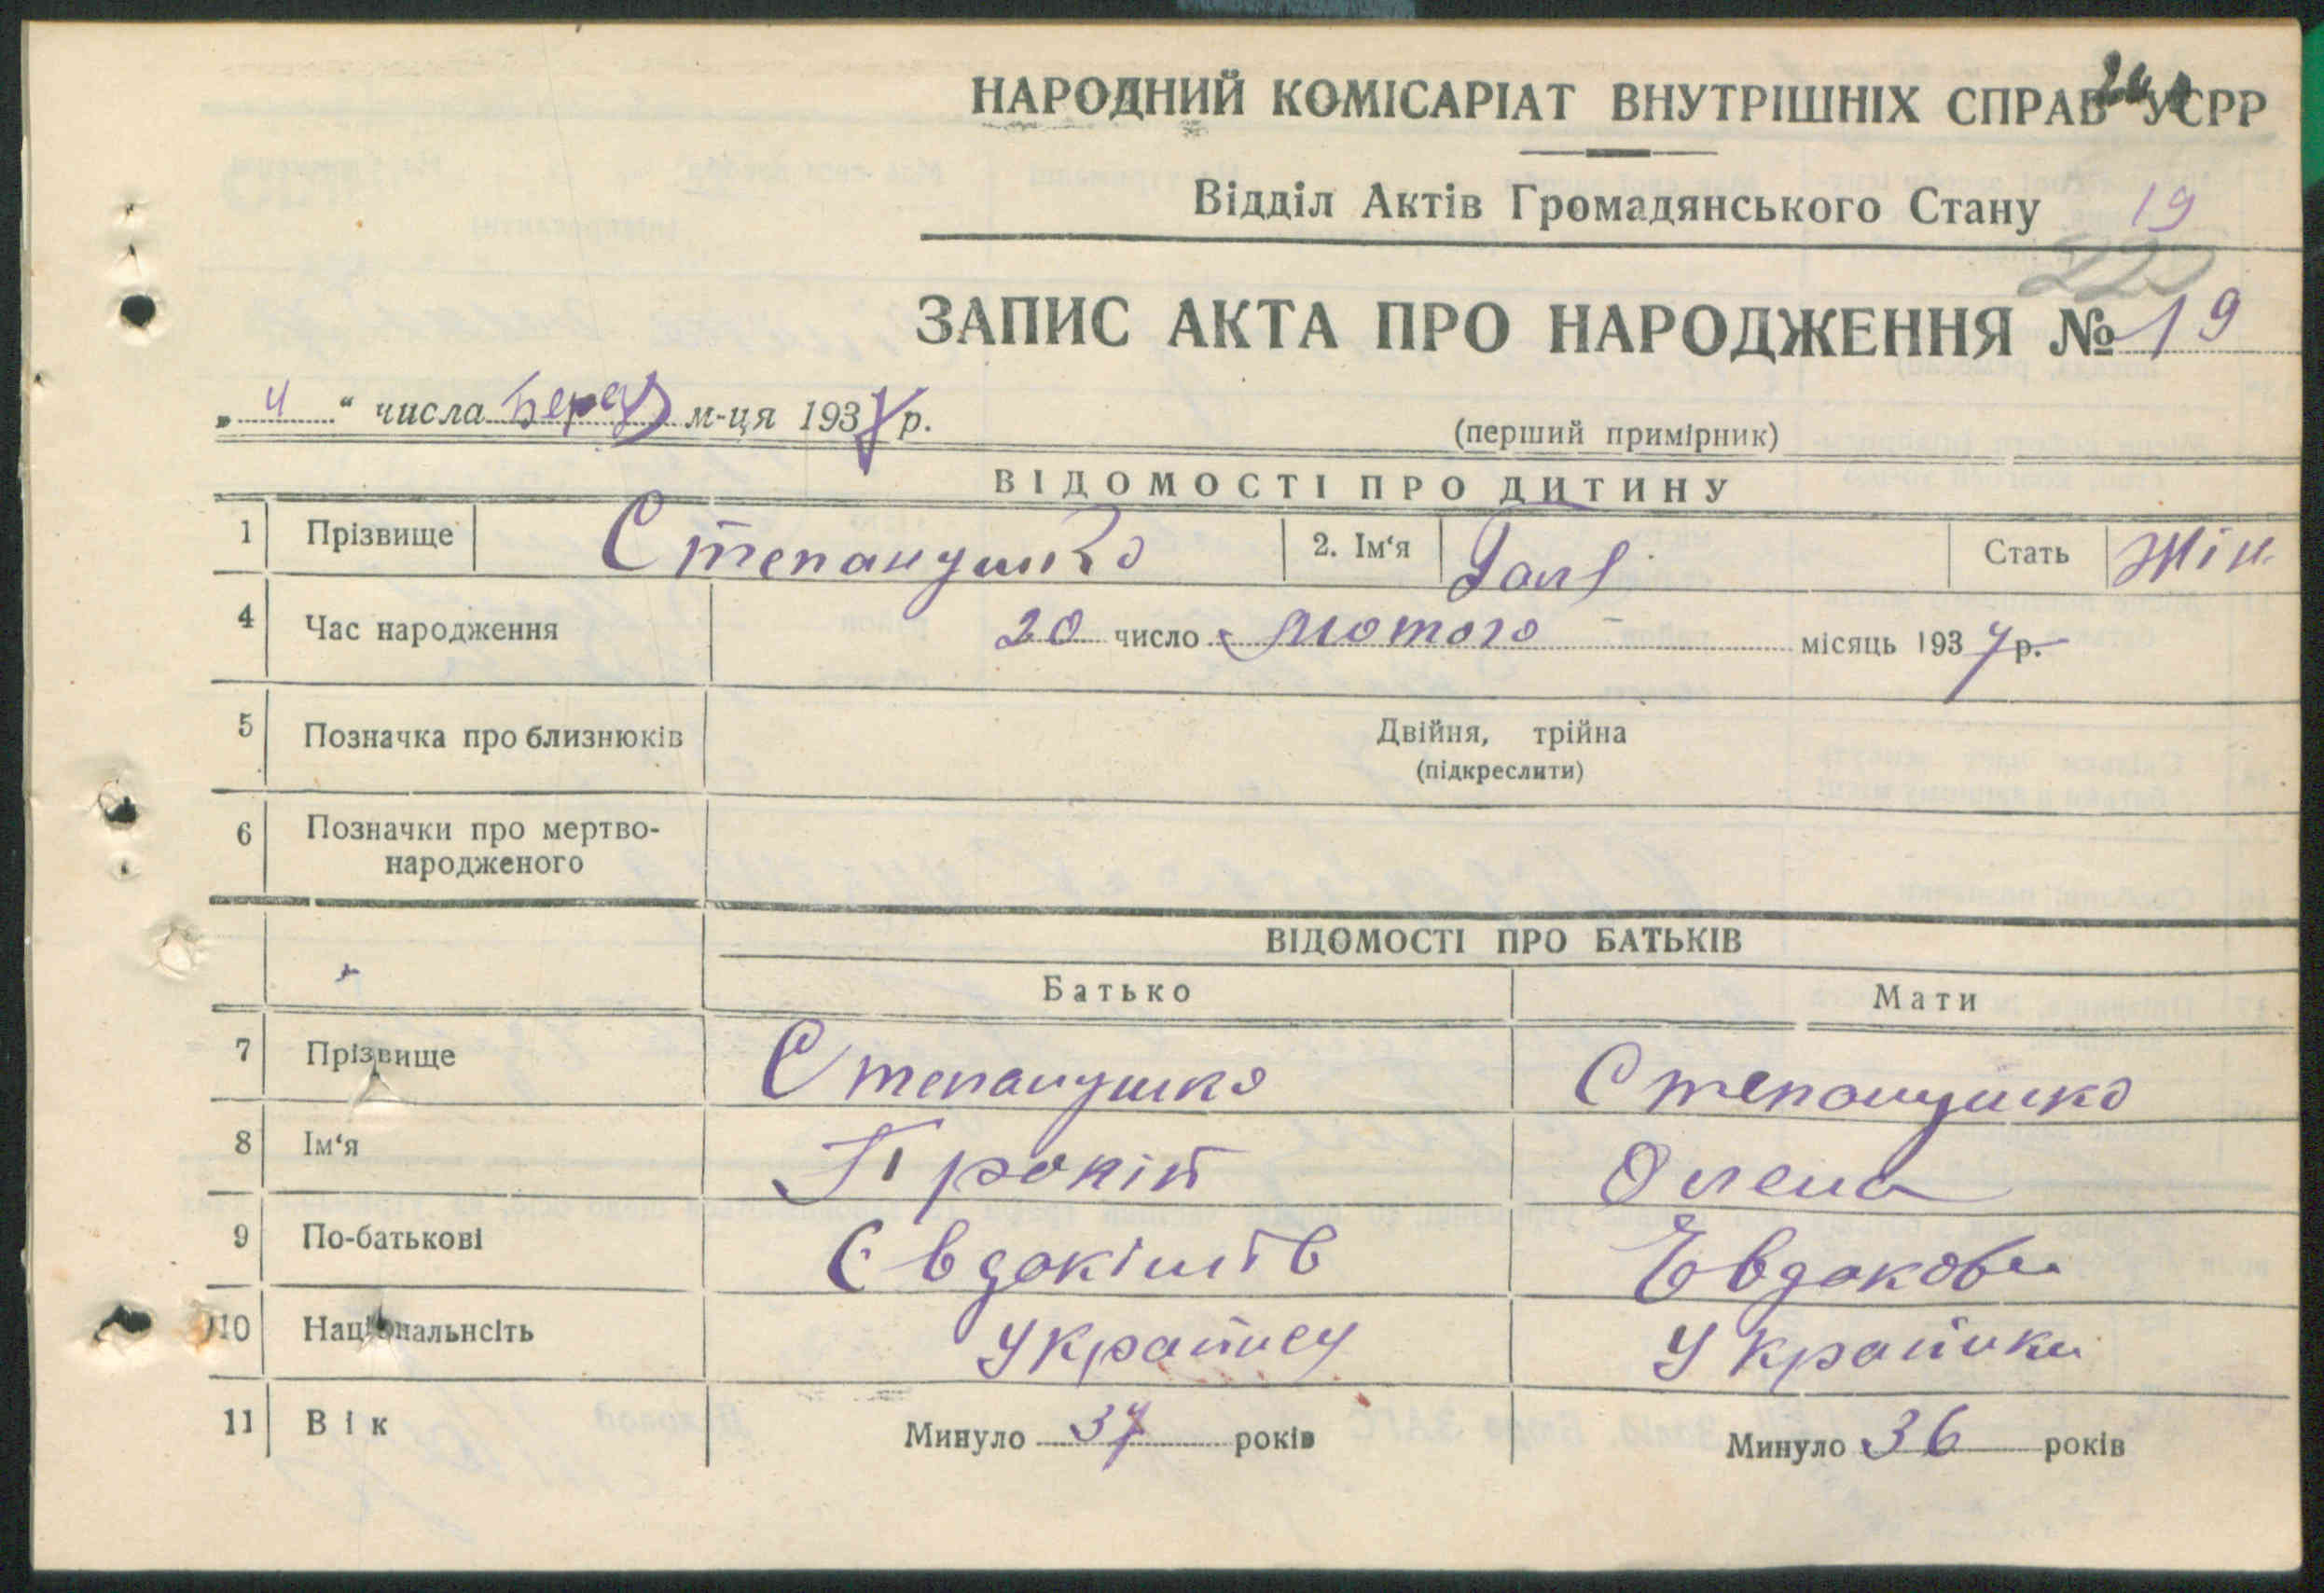 НАРОДНИЙ КОМІСАРІАТ ВНУТРІШНІХ СПРАВ УСРР
Відділ Актів Громадянського Стану 19
ЗАПИС АКТА ПРО НАРОДЖЕННЯ № 19
„ 4 “ числа берез м-ця 1937 р.
(перший примірник)
ВІДОМОСТІ ПРО ДИТИНУ
1 Прізвище Степанушко 2. Ім‘я Галя Стать Жін.
4 Час народження 20 число лютого місяць 1937 р.
5 Позначка про близнюків Двійня, трійна
(підкреслити)
6 Позначки про мертво-
народженого
ВІДОМОСТІ ПРО БАТЬКІВ
Батько Мати
7 Прізвище Степанушко Степанушко
8 Ім‘я Прокіп Олена
9 По-батькові Євдокімів Евдоковн
10 Національнсіть Украйнец Украйнка
11 Вік Минуло 37 років Минуло 36 років